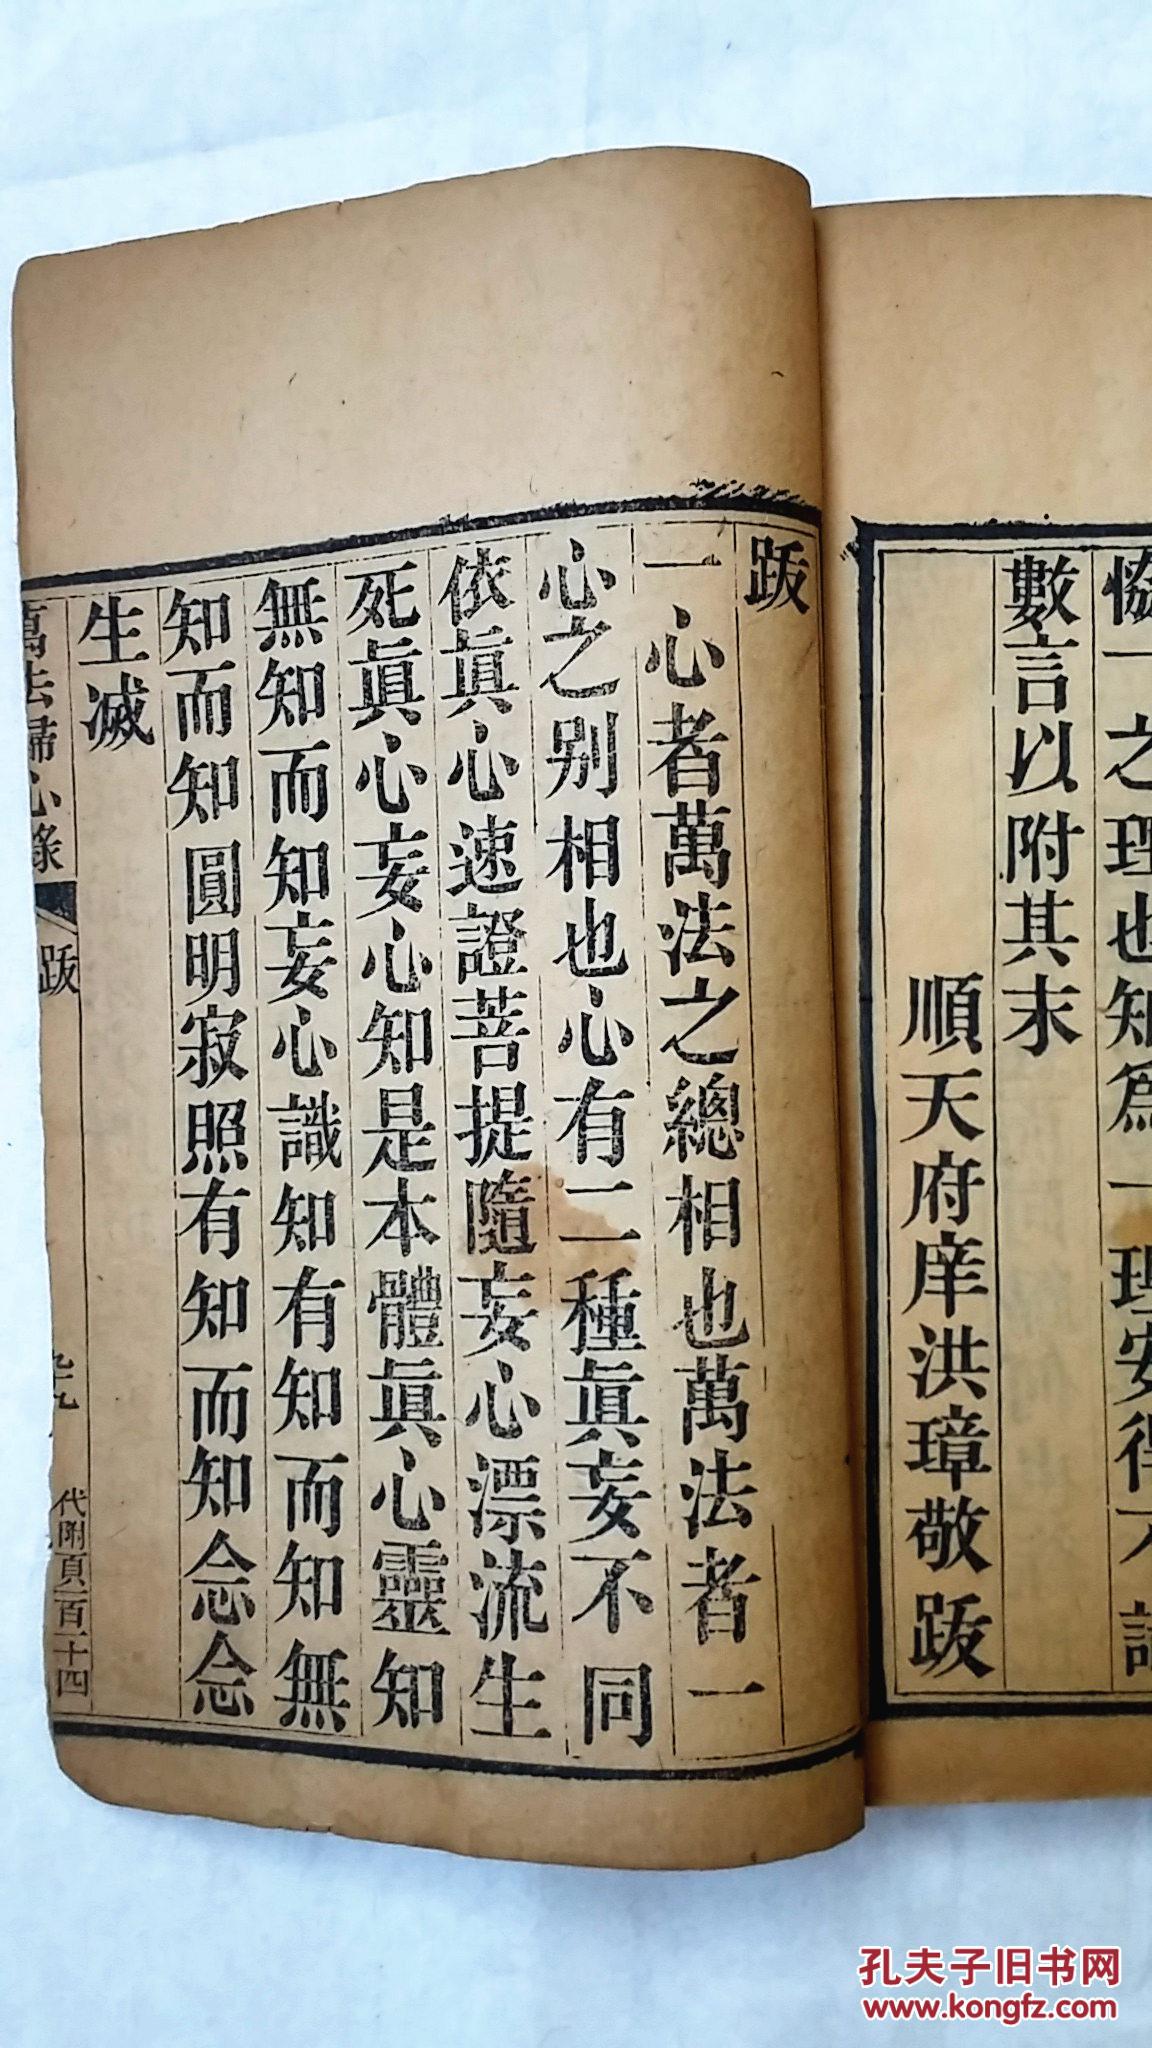 恊一之理也知爲一理安得不
數言以附其末
順天府庠洪璋敬跋
跋
一心者萬法之總相也萬法者一
心之别相也心有二種眞妄不同
依眞心速證菩提隨妄心漂流生
死眞心妄心知是本體眞心靈知
無知而知妄心識知有知而知無
知而知圓明寂照有知而知念念
生滅
萬法歸心錄
跋
代附頁一百十四
孔夫子旧书网
www.kongfz.com